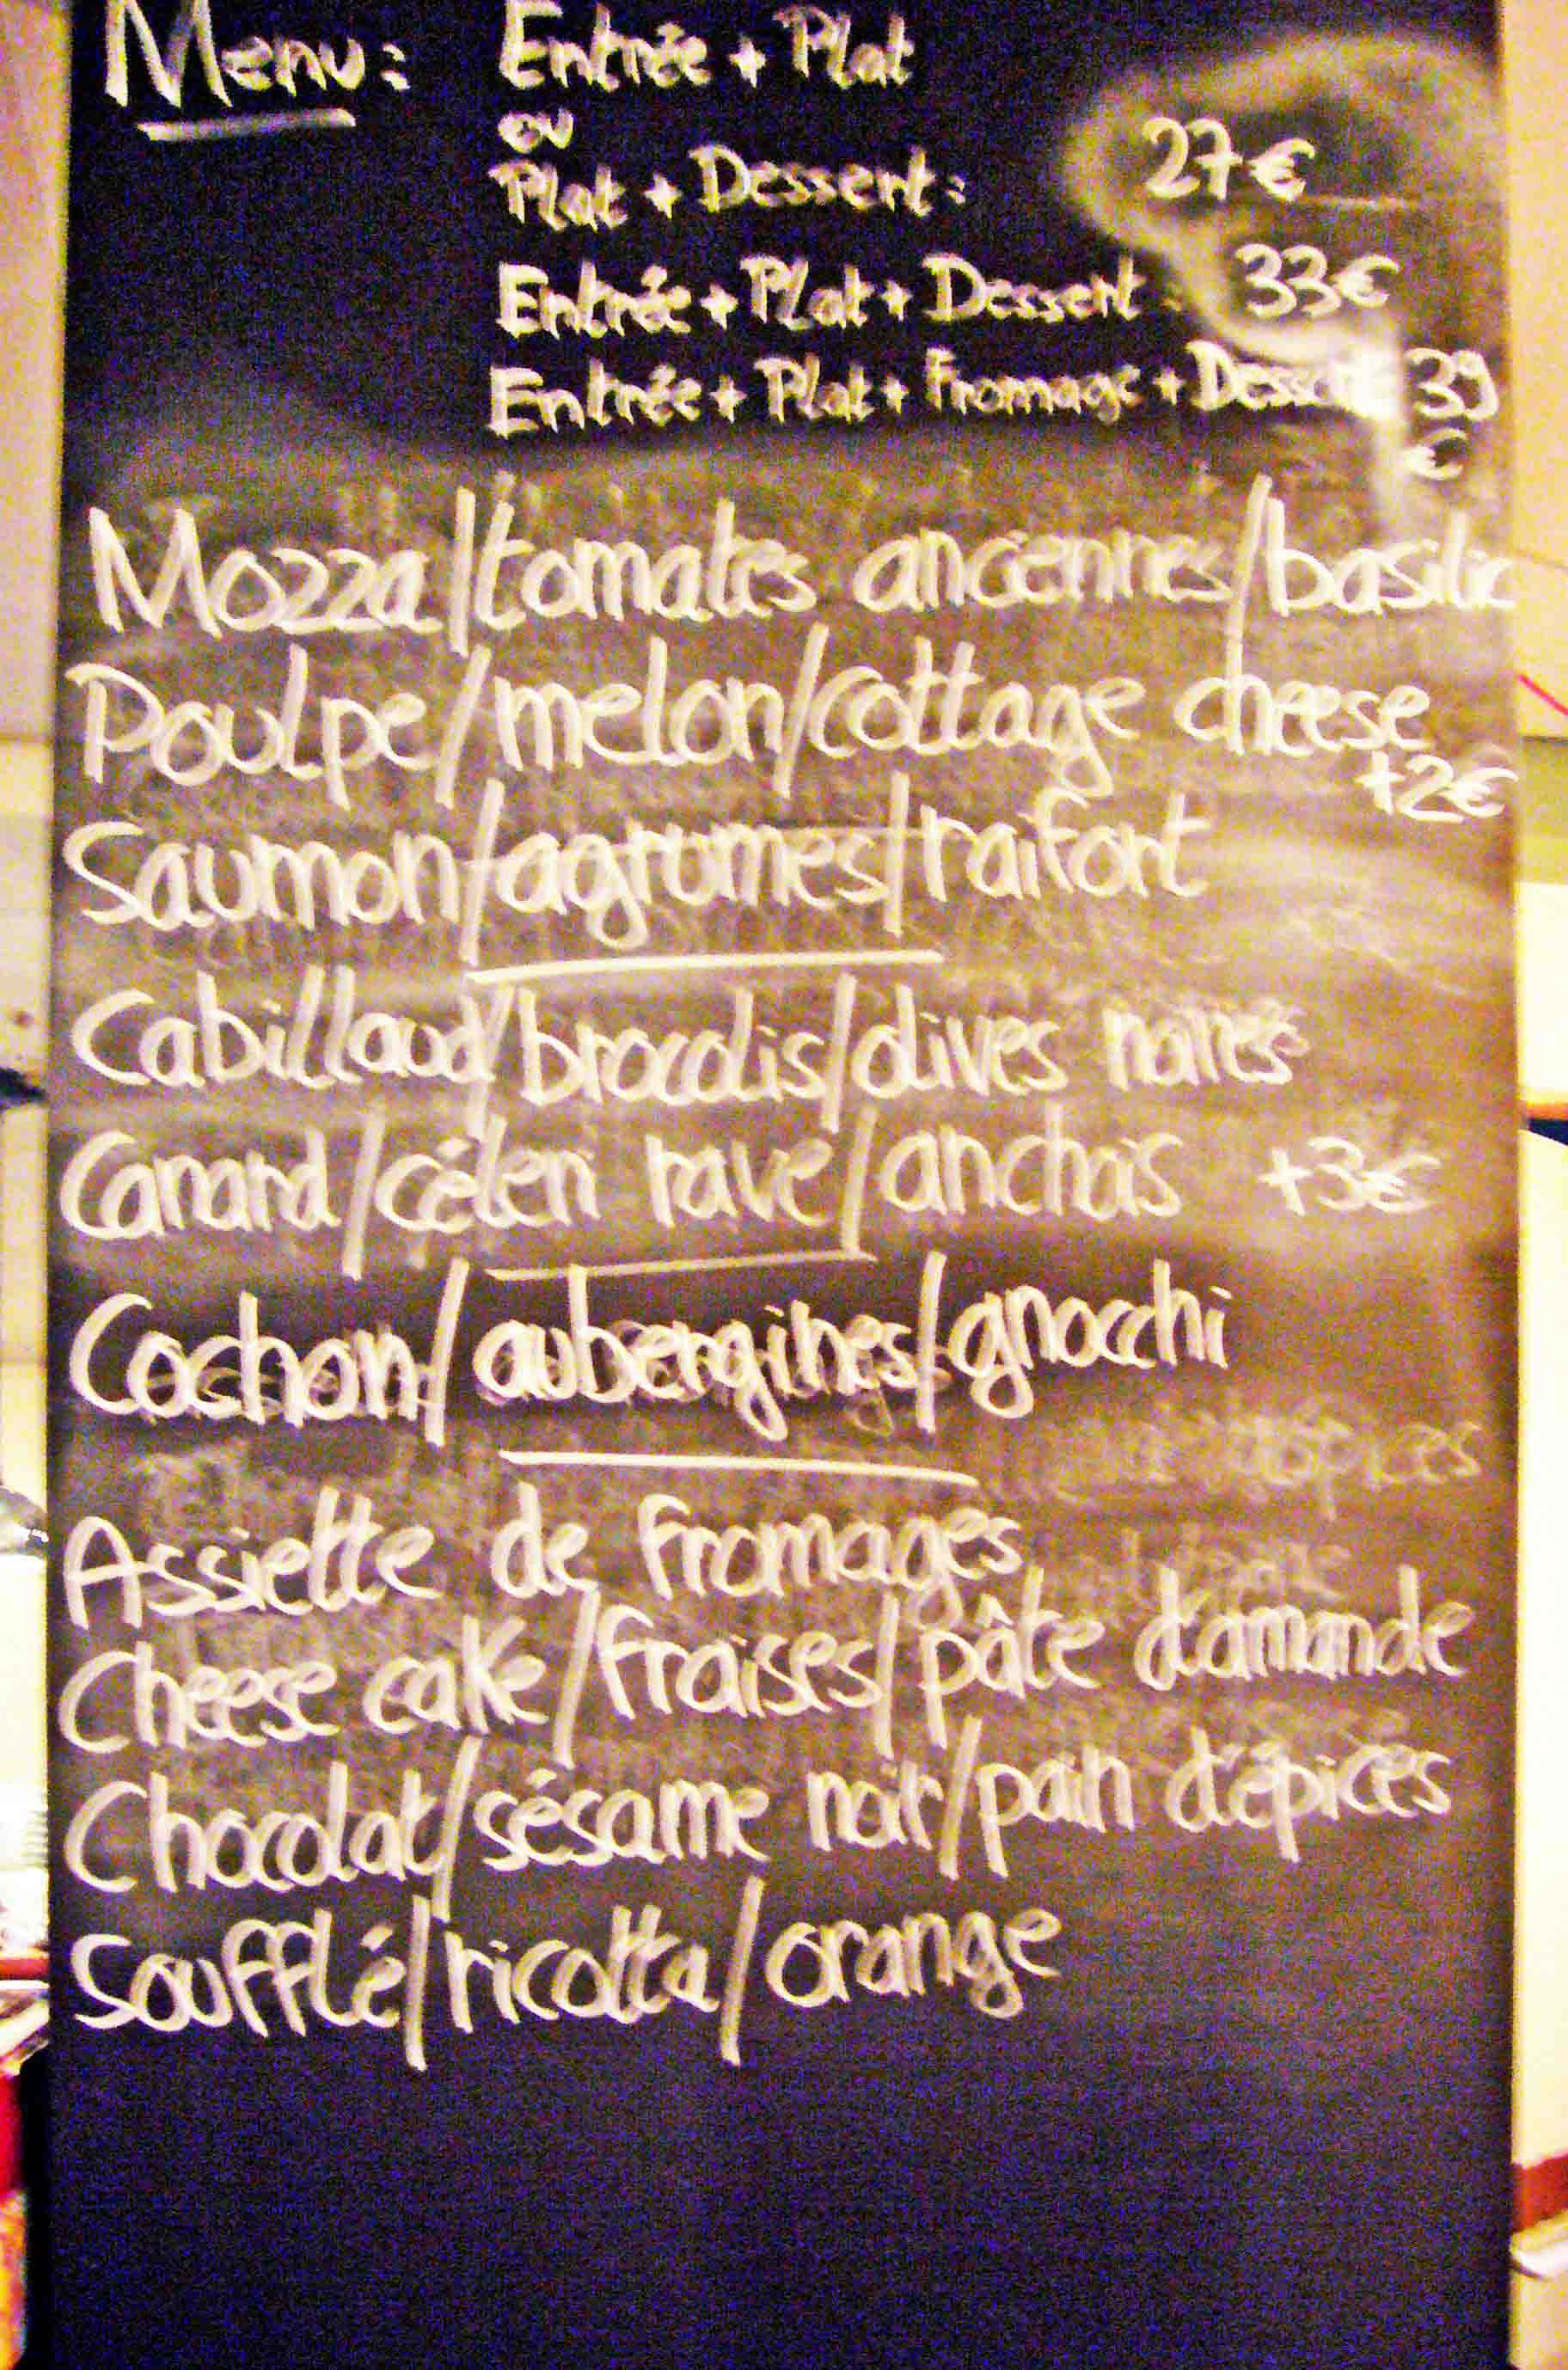 Menu: Entrée + Plat
ou
Plat + Dessert: 27€
Entrée + Plat + Dessert: 33€
Entrée + Plat + Fromage + Dessert 39
€
Mozza/tomates anciennes/basilic
Poulpe/melon/cottage cheese
+2€
Saumon/agrumes/raifort
Cabillaud/brocolis/olives noires
Canard/céleri rave/anchois +3€
Cochon/aubergines/gnocchi
Assiette de fromages
Cheese cake/fraises/pâte d'amande
Chocolat/sésame noir/pain d'épices
Soufflé/ricotta/orange